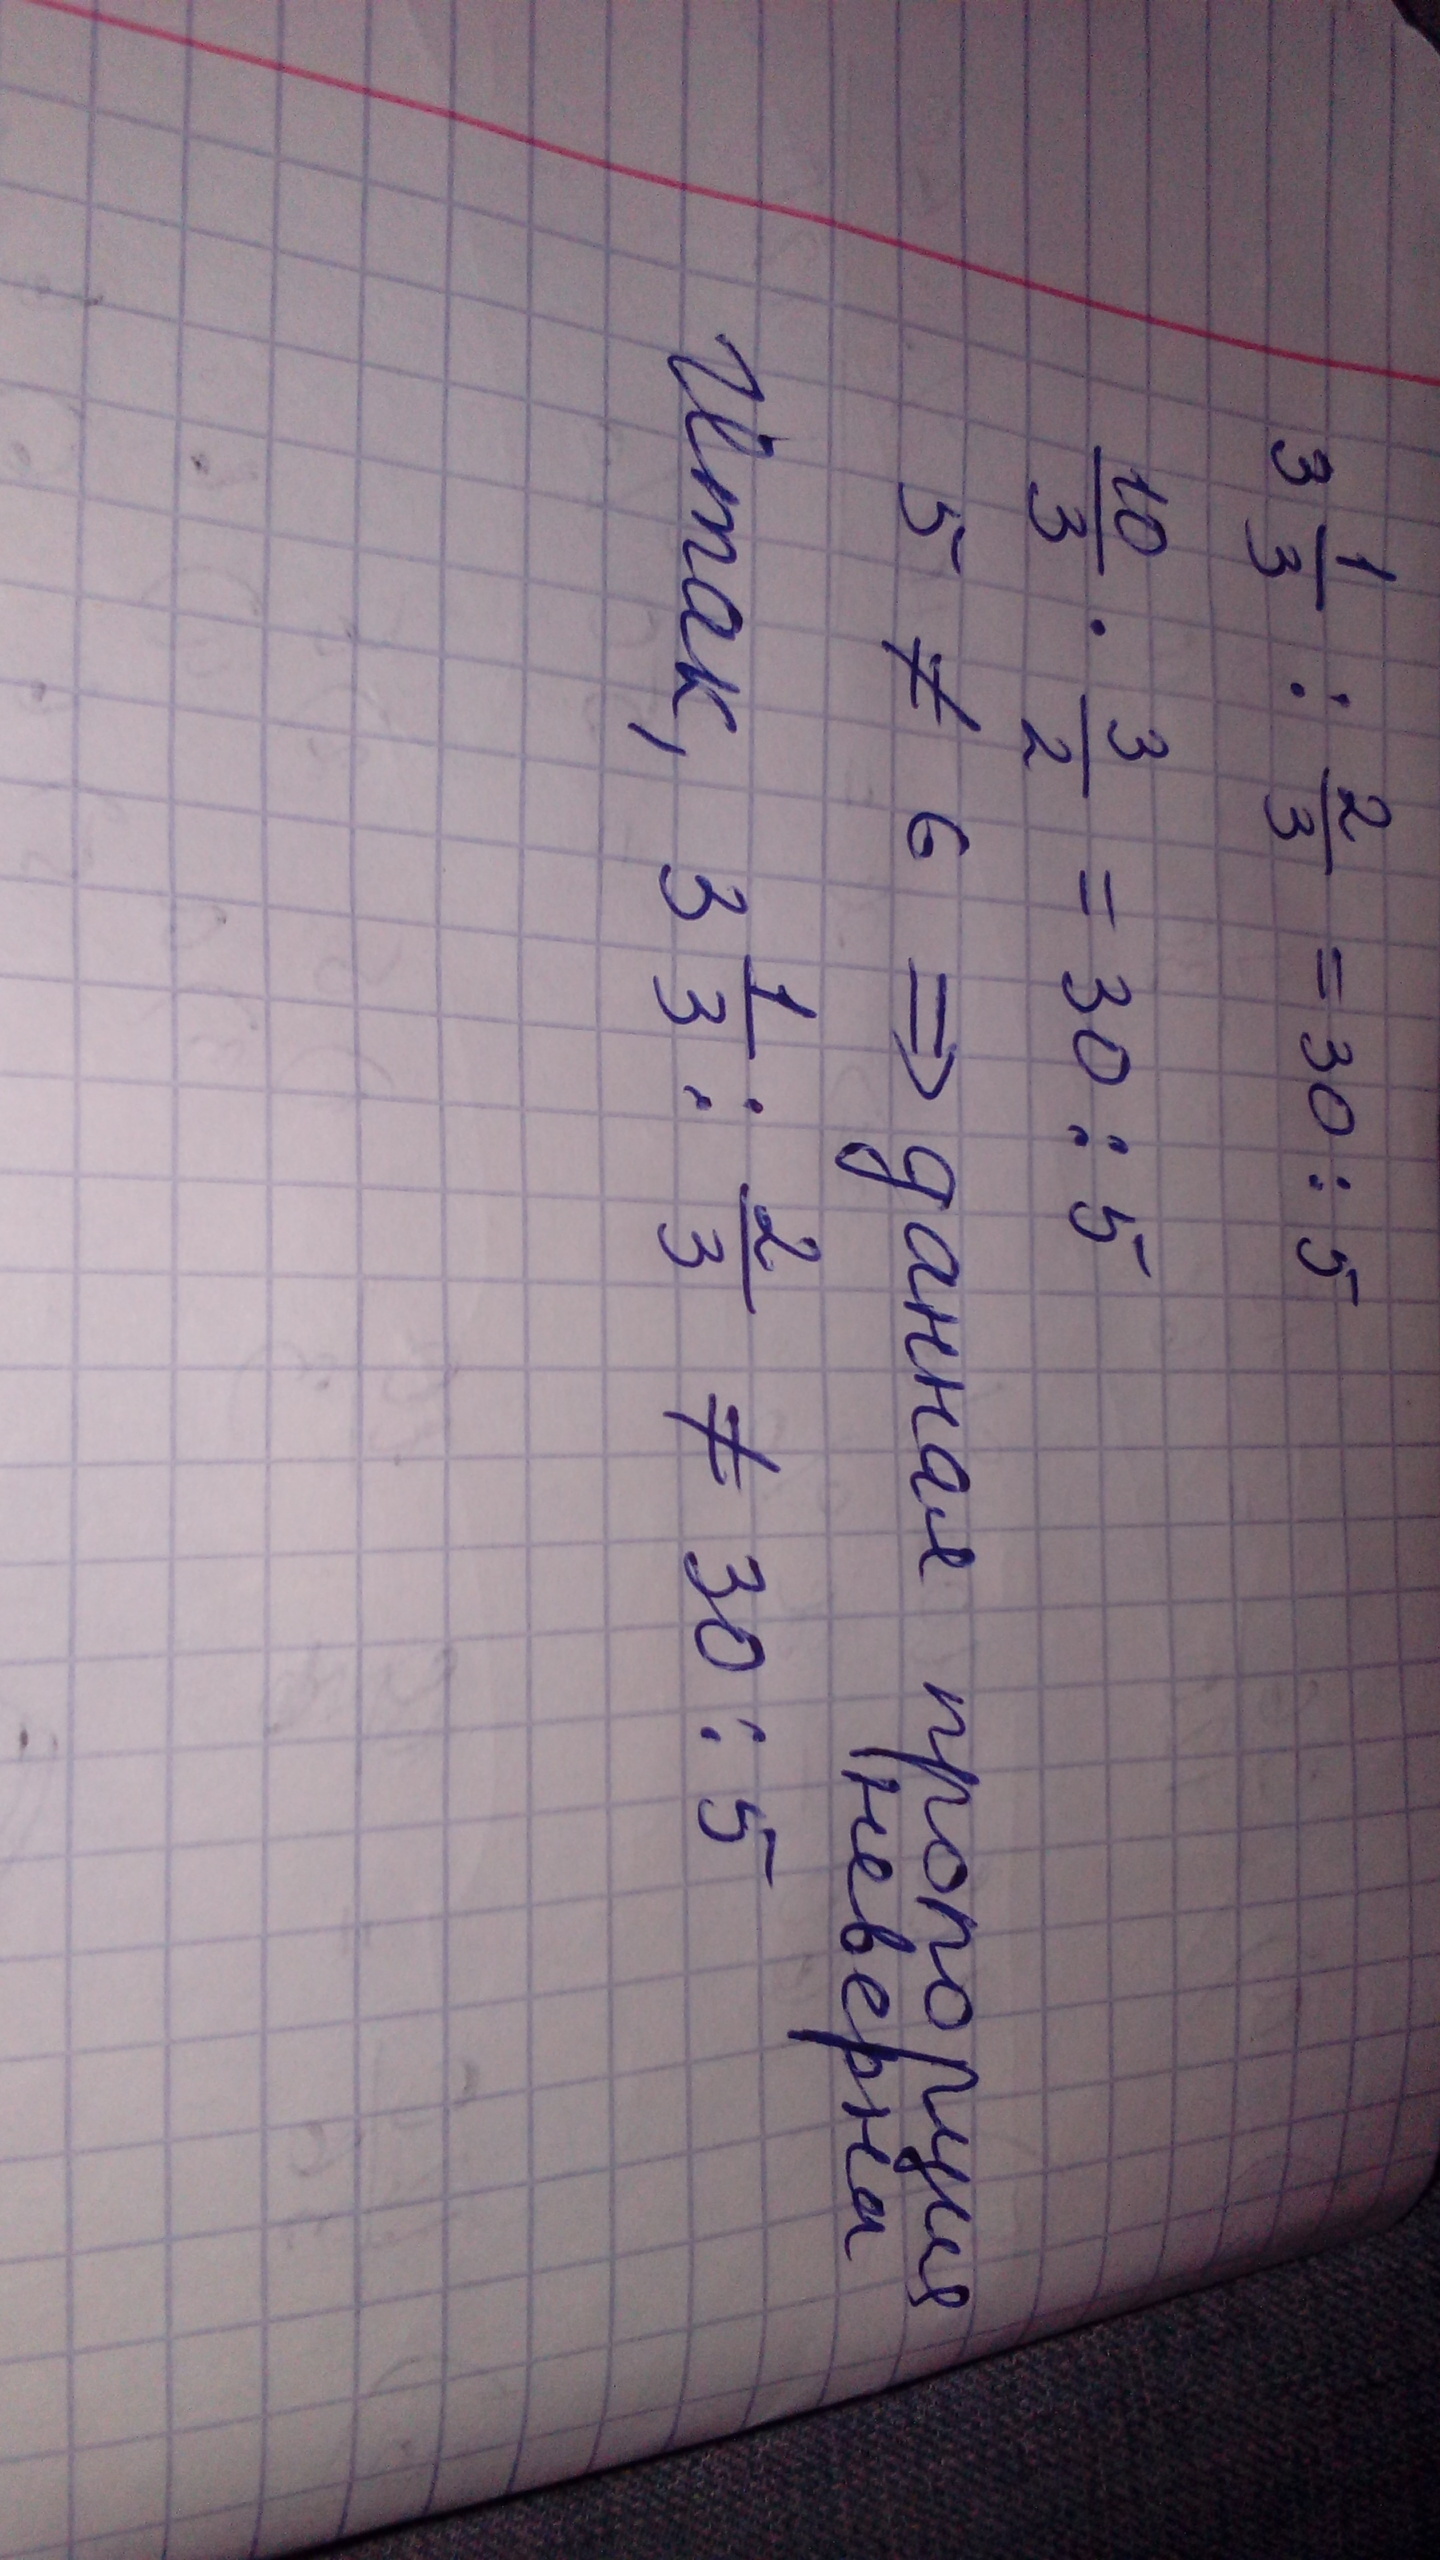 3 1/3 : 2/3 = 30 : 5
10/3 · 3/2 = 30 : 5
5 ≠ 6 ⇒ данная пропорция
неверна
Итак, 3 1/3 : 2/3 ≠ 30 : 5